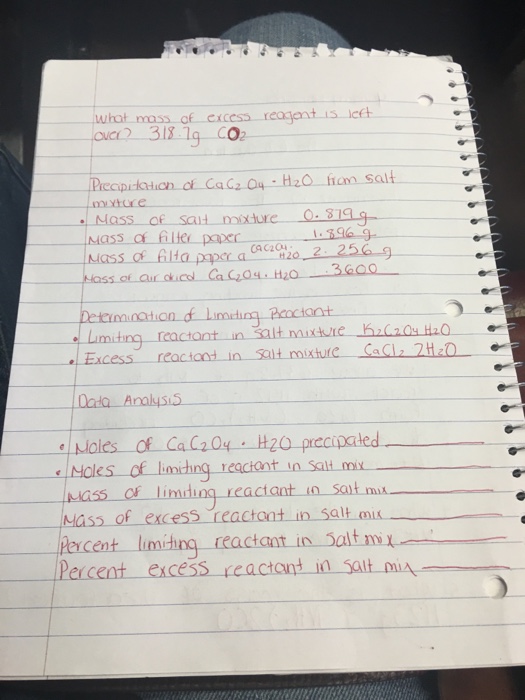 What mass of excess reagent is left
over? 318.7g CO2
Precipitation of CaC2O4 · H2O from salt
mixture
• Mass of salt mixture 0.879 g
Mass of filter paper 1.896 g
Mass of filta paper a CaC2O4 · H2O 2.256 g
Mass of air dried CaC2O4 · H2O .3600
Determination of Limiting Reactant
• Limiting reactant in salt mixture K2C2O4 H2O
• Excess reactant in salt mixture CaCl2 2H2O
Data Analysis
• Moles of CaC2O4 · H2O precipated
• Moles of limiting reactant in salt mix
Mass of limiting reactant in salt mix
Mass of excess reactant in salt mix
Percent limiting reactant in salt mix
Percent excess reactant in salt mix